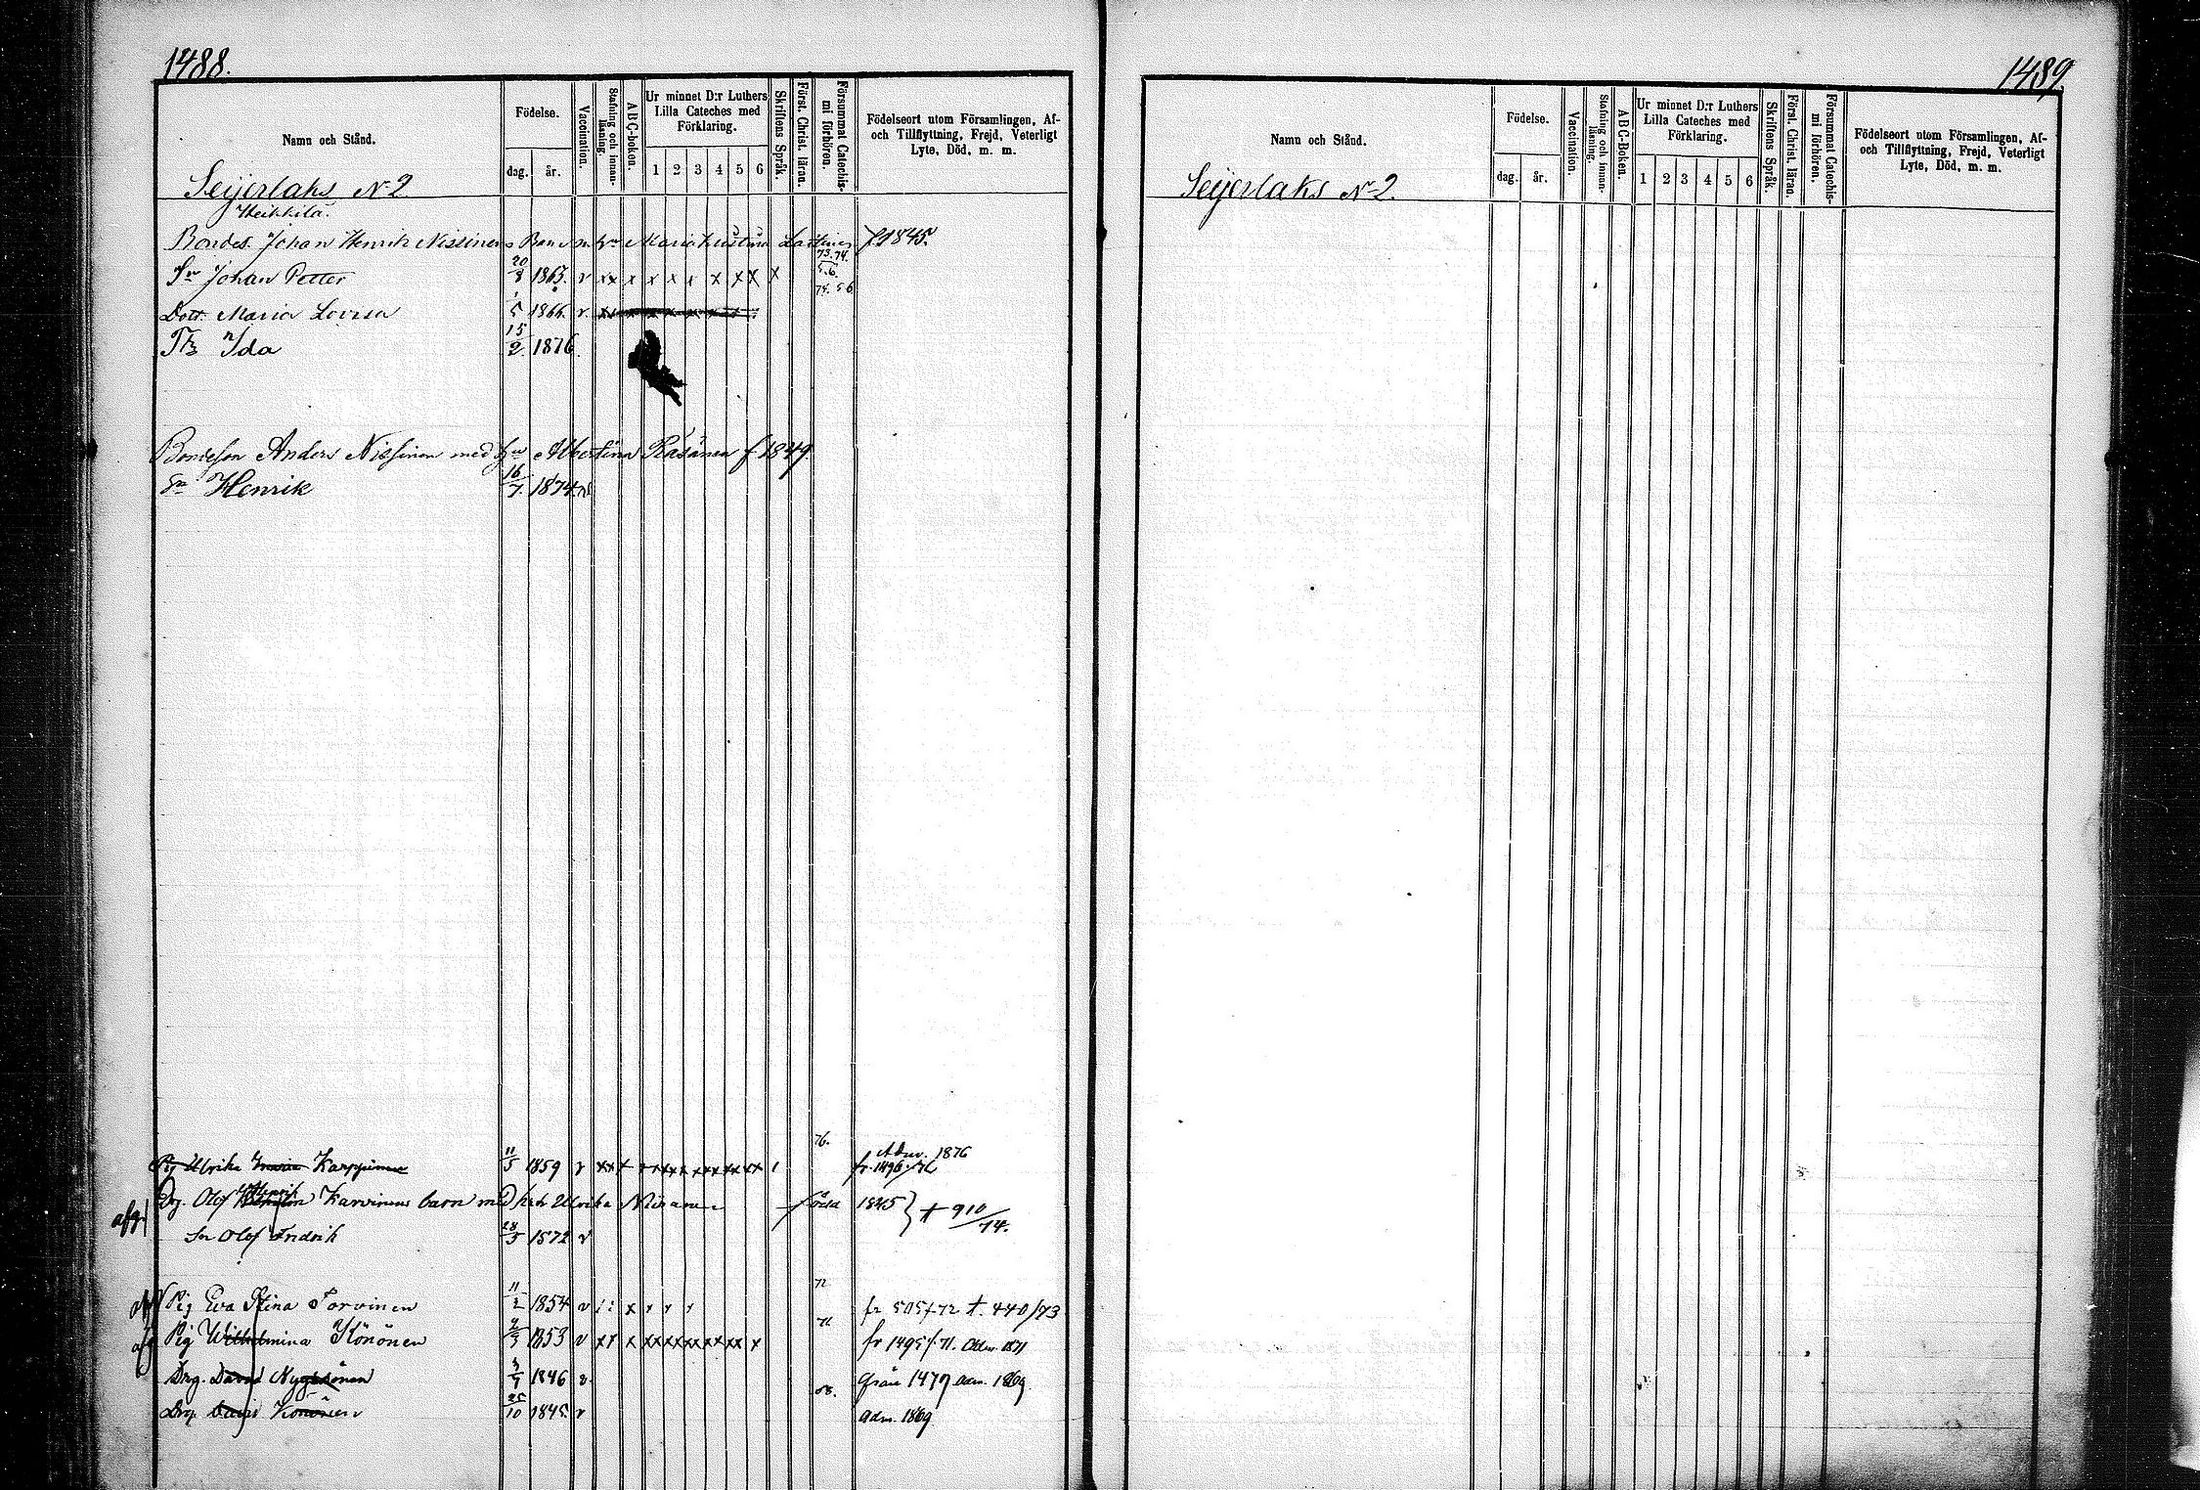 1488.
Namn och Stånd.
Födelse.
dag.
år.
Vaccination.
Stafning och innan-
läsning.
ABC-boken.
Ur minnet D:r Luthers
Lilla Cateches med
Förklaring.
1 2 3 4 5 6
Skriftens Språk.
Först. Christ. läran.
Försummat Catechis-
mi förhören.
Födelseort utom Församlingen, Af-
och Tillflyttning, Frejd, Veterligt
Lyte, Död, m. m.
Seijerlaks N 2
Heikkilä.
Bondes. Johan Henrik Nissinens Barn m hu Maria f. 1845.
73. 74.
Sn Johan Petter 20/8 1863. v x x x x x x x x x x 5.6.
74. 5 6
Dott. Maria Lovisa 1/5 1866. v
Ida 15/2. 1876
Bondeson Anders Nissinen med hu Albertina Räsänen f. 1849.
Sn Henrik 16/7. 1874
76.
Pig Ulrika Karppinen 11/5 1859 v 1 Adm. 1876
fr. 1496/76
Drg. Olof Henrik Karvinens barn med h Ulrika född 1845 } + 910/74.
afg.
Sn Olof Fredrik 28/5 1872 v
72
Pig Eva Stina Torvinen 11/2 1854 v x fr 505/72 t. 440/73
71
afg Pig Wilhelmina Könönen 1853 v fr 1495/71. Adm. 1871
Drg. David 1846 v från 1477 adm. 1869
68.
Drg. David Könönen 25/10 1845 v adm. 1869
1489.
Namn och Stånd.
Födelse.
dag.
år.
Vaccination.
Stafning och innan-
läsning.
ABC-Boken.
Ur minnet D:r Luthers
Lilla Cateches med
Förklaring.
1 2 3 4 5 6
Skriftens Språk.
Först. Christ. läran.
Försummat Catechis-
mi förhören.
Födelseort utom Församlingen, Af-
och Tillflyttning, Frejd, Veterligt
Lyte, Död, m. m.
Seijerlaks N 2.